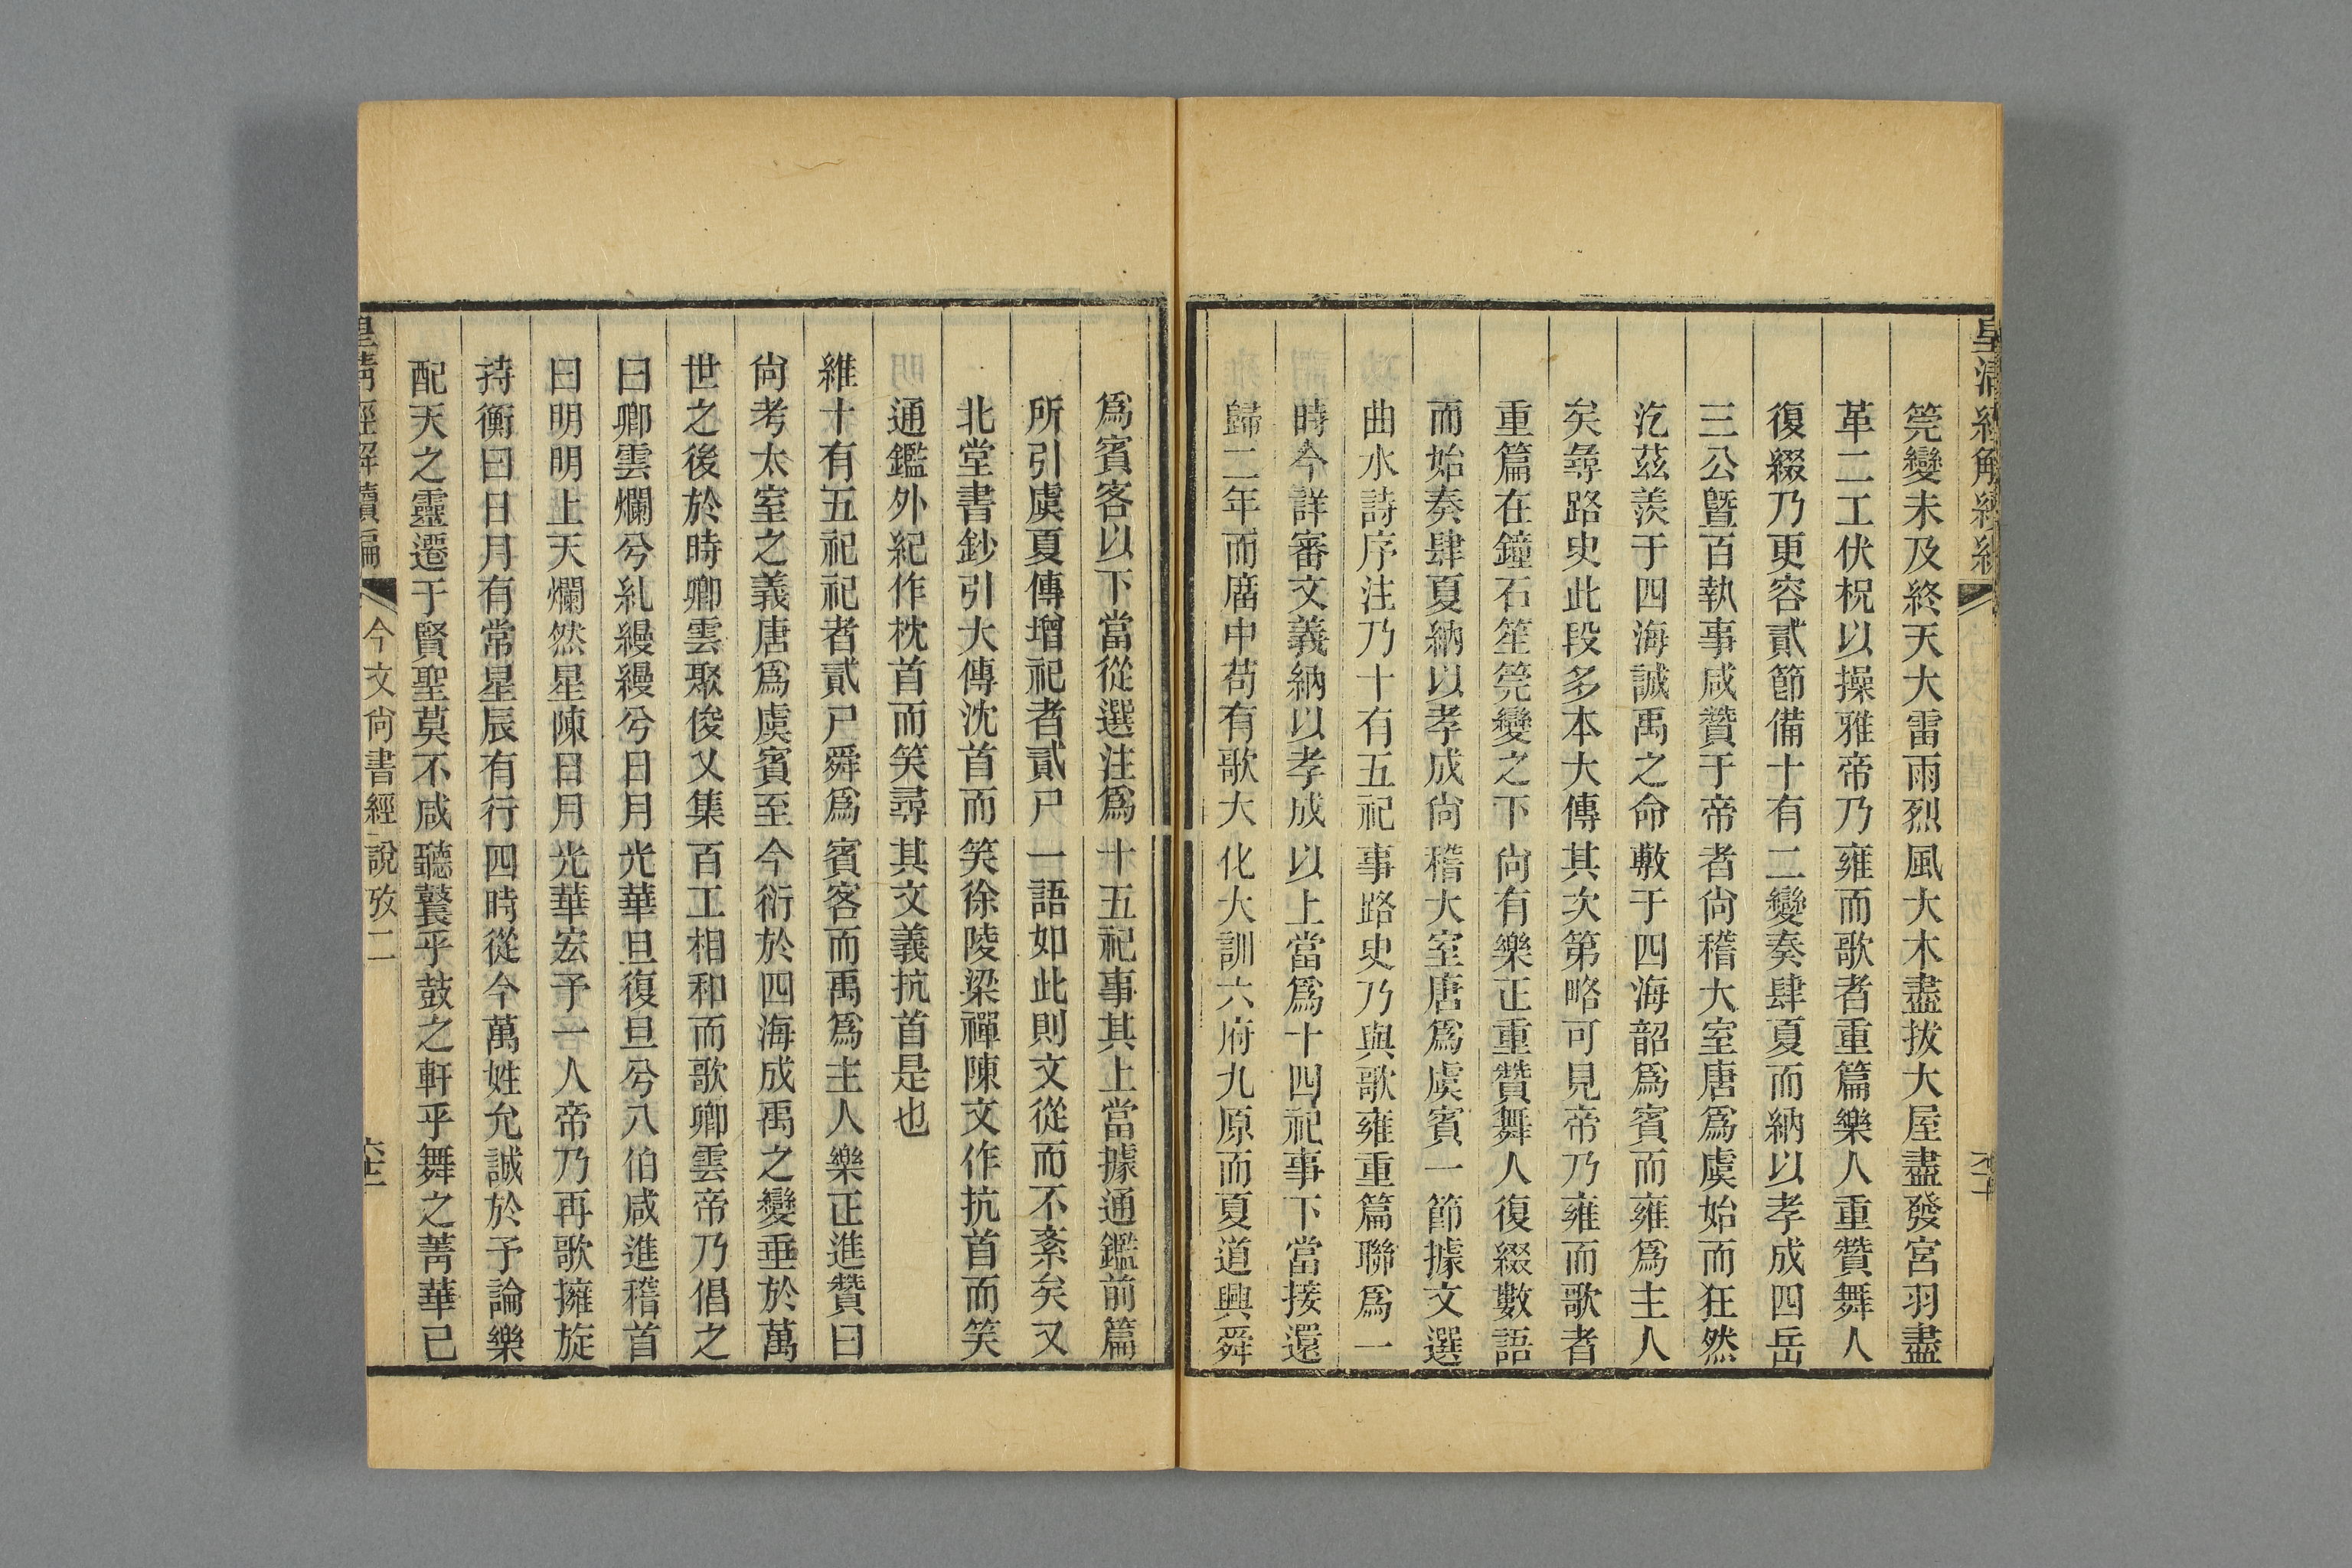 皇清經解續編
筦變未及終天大雷雨烈風大木盡拔大屋盡發宮羽盡
革二工伏柷以操雅帝乃雍而歌者重篇樂人重贊舞人
復綴乃更容貳節備十有二變奏肆夏而納以孝成四岳
三公暨百執事咸贊于帝者尙稽大室唐爲虞始而狂然
汔茲羨于四海誠禹之命敷于四海韶爲賓而雍爲主人
矣㝷路史此段多本大傳其次第略可見帝乃雍而歌者
重篇在鐘石笙筦變之下尙有樂正重贊舞人復綴數語
而始奏肆夏納以孝成尙稽大室唐爲虞賓一節據文選
曲水詩序注乃十有五祀事路史乃與歌雍重篇聯爲一
時今詳審文義納以孝成以上當爲十四祀事下當接還
歸二年而廟中苟有歌大化大訓六府九原而夏道興舜
爲賓客以下當從選注爲十五祀事其上當據通鑑前篇
所引虞夏傳增祀者貳尸一語如此則文從而不紊矣又
北堂書鈔引大傳沈首而笑徐陵梁禪陳文作抗首而笑
通鑑外紀作枕首而笑尋其文義抗首是也
維十有五祀祀者貳尸舜爲賓客而禹爲主人樂正進贊曰
尙考太室之義唐爲虞賓至今衍於四海成禹之變垂於萬
世之後於時卿雲聚俊乂集百工相和而歌卿雲帝乃倡之
曰卿雲爛兮糺縵縵兮日月光華旦復旦兮八伯咸進稽首
曰明明上天爛然星陳日月光華宏予一人帝乃再歌擁旋
持衡曰日月有常星辰有行四時從今萬姓允誠於予論樂
配天之靈遷于賢聖莫不咸聽鼚乎鼓之軒乎舞之菁華已
皇清經解續編 今文尙書經說攷二